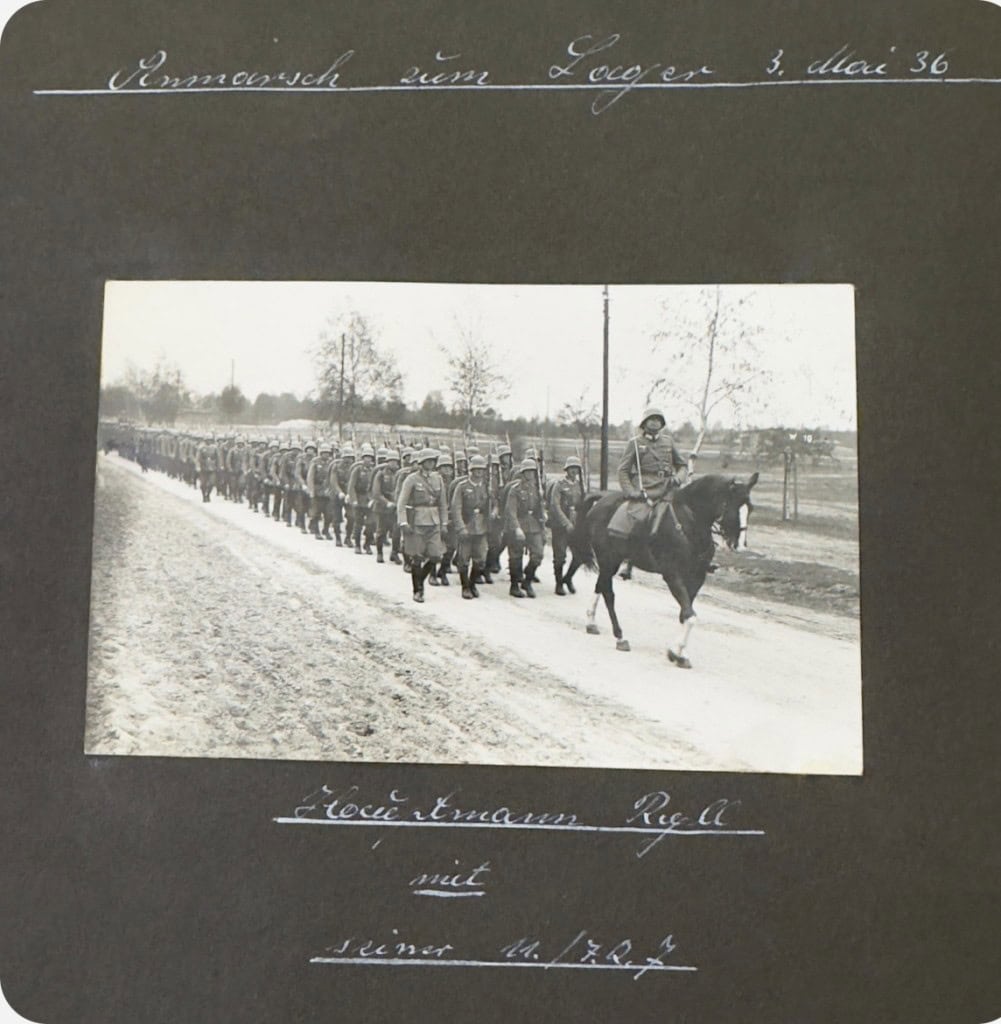 Anmarsch zum Lager 3. Mai 36
Hauptmann
mit
seiner 11./J.R. 7